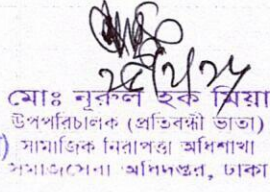 মোঃ নূরুল হক মিয়া
উপপরিচালক (প্রতিবন্ধী ভাতা)
) সামাজিক নিরাপত্তা অধিশাখা
সমাজসেবা অধিদপ্তর, ঢাকা